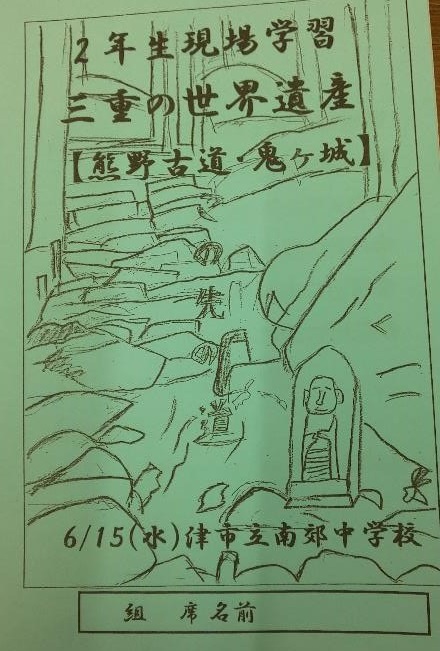 2年生現場学習
三重の世界遺産
【熊野古道・鬼ヶ城】
道
6/15(水)津市立南郊中学校
組 席名前